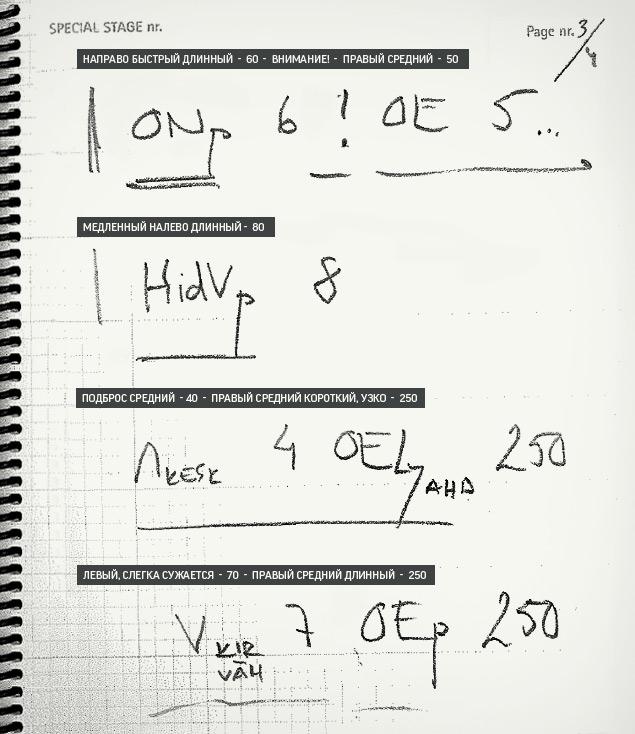 SPECIAL STAGE nr.
Page nr. 3/4
НАПРАВО БЫСТРЫЙ ДЛИННЫЙ - 60 - ВНИМАНИЕ! - ПРАВЫЙ СРЕДНИЙ - 50
ONp 6 ! OE 5...
МЕДЛЕННЫЙ НАЛЕВО ДЛИННЫЙ - 80
HidVp 8
ПОДБРОС СРЕДНИЙ - 40 - ПРАВЫЙ СРЕДНИЙ КОРОТКИЙ, УЗКО - 250
KESK 4 OEL AHD 250
ЛЕВЫЙ, СЛЕГКА СУЖАЕТСЯ - 70 - ПРАВЫЙ СРЕДНИЙ ДЛИННЫЙ - 250
V KIR 7 OEp 250
VÄH